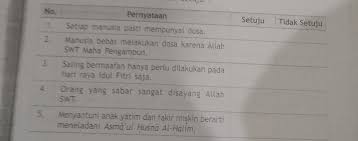 No. Pernyataan Setuju Tidak Setuju
1. Setiap manusia pasti mempunyai dosa.
2. Manusia bebas melakukan dosa karena Allah
SWT Maha Pengampun.
3. Saling bermaafan hanya perlu dilakukan pada
hari raya Idul Fitri saja.
4. Orang yang sabar sangat disayang Allah
SWT.
5. Menyantuni anak yatim dan fakir miskin berarti
meneladani Asmā'ul Husnā Al-Halim.